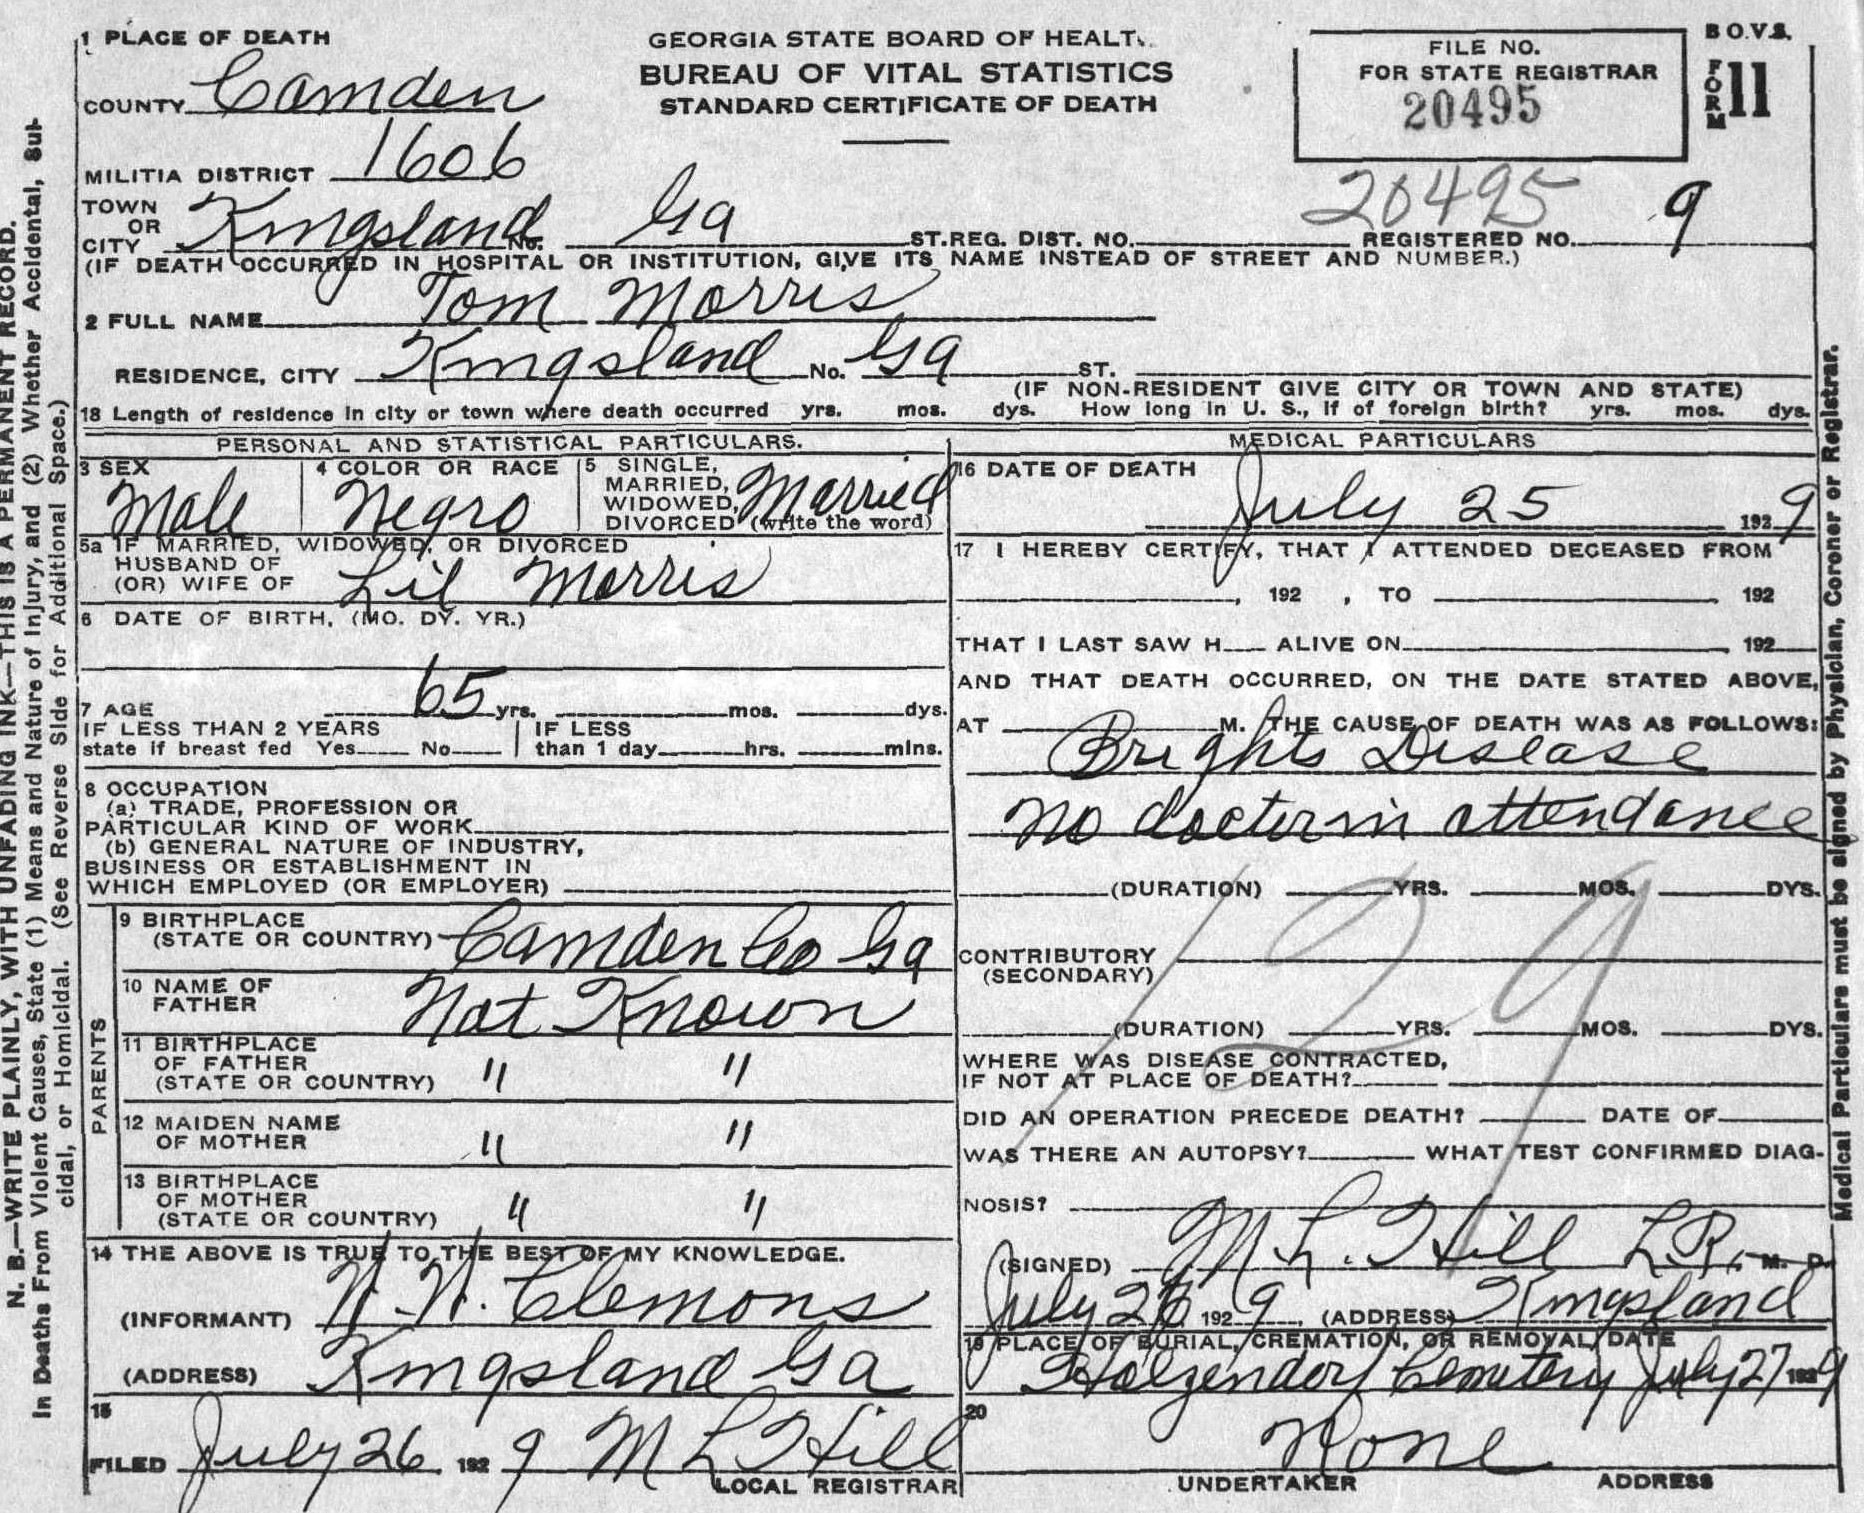 1 PLACE OF DEATH
COUNTY Camden
MILITIA DISTRICT 1606
TOWN OR CITY Kingsland No. Ga ST. REG. DIST. NO. REGISTERED NO. 9
(IF DEATH OCCURRED IN HOSPITAL OR INSTITUTION, GIVE ITS NAME INSTEAD OF STREET AND NUMBER.)
GEORGIA STATE BOARD OF HEALT
BUREAU OF VITAL STATISTICS
STANDARD CERTIFICATE OF DEATH
FILE NO.
FOR STATE REGISTRAR
20495
20495
B.O.V.S.
FORM 11
2 FULL NAME Tom Morris
RESIDENCE, CITY Kingsland No. Ga ST.
(IF NON-RESIDENT GIVE CITY OR TOWN AND STATE)
18 Length of residence in city or town where death occurred yrs. mos. dys. How long in U. S., if of foreign birth? yrs. mos. dys.
PERSONAL AND STATISTICAL PARTICULARS.
3 SEX Male
4 COLOR OR RACE Negro
5 SINGLE, MARRIED, WIDOWED, DIVORCED (write the word) Married
5a IF MARRIED, WIDOWED, OR DIVORCED
HUSBAND OF
(OR) WIFE OF Lil Morris
6 DATE OF BIRTH, (MO. DY. YR.)
7 AGE 65 yrs. mos. dys.
IF LESS THAN 2 YEARS
state if breast fed Yes No
IF LESS
than 1 day hrs. mins.
8 OCCUPATION
(a) TRADE, PROFESSION OR
PARTICULAR KIND OF WORK
(b) GENERAL NATURE OF INDUSTRY,
BUSINESS OR ESTABLISHMENT IN
WHICH EMPLOYED (OR EMPLOYER)
PARENTS
9 BIRTHPLACE
(STATE OR COUNTRY) Camden Co Ga
10 NAME OF
FATHER Not Known
11 BIRTHPLACE
OF FATHER
(STATE OR COUNTRY) " "
12 MAIDEN NAME
OF MOTHER " "
13 BIRTHPLACE
OF MOTHER
(STATE OR COUNTRY) " "
14 THE ABOVE IS TRUE TO THE BEST OF MY KNOWLEDGE.
(INFORMANT) N. N. Clemons
(ADDRESS) Kingsland Ga
15
FILED July 26 1929 M L Hill
LOCAL REGISTRAR
MEDICAL PARTICULARS
16 DATE OF DEATH
July 25 1929
17 I HEREBY CERTIFY, THAT I ATTENDED DECEASED FROM
, 192 , TO 192
THAT I LAST SAW H ALIVE ON 192
AND THAT DEATH OCCURRED, ON THE DATE STATED ABOVE,
AT M. THE CAUSE OF DEATH WAS AS FOLLOWS:
Brights Disease
No doctor in attendance
(DURATION) YRS. MOS. DYS.
129
CONTRIBUTORY
(SECONDARY)
(DURATION) YRS. MOS. DYS.
WHERE WAS DISEASE CONTRACTED,
IF NOT AT PLACE OF DEATH?
DID AN OPERATION PRECEDE DEATH? DATE OF
WAS THERE AN AUTOPSY? WHAT TEST CONFIRMED DIAG-
NOSIS?
(SIGNED) M L. Hill L.R., M. D.
July 26 1929, (ADDRESS) Kingsland
19 PLACE OF BURIAL, CREMATION, OR REMOVAL, DATE
Holzendorf Cemetery July 27 1929
20
None
UNDERTAKER ADDRESS
N. B.—WRITE PLAINLY, WITH UNFADING INK—THIS IS A PERMANENT RECORD.
In Deaths From Violent Causes, State (1) Means and Nature of Injury, and (2) Whether Accidental, Sui-
cidal, or Homicidal. (See Reverse Side for Additional Space.)
Medical Particulars must be signed by Physician, Coroner or Registrar.